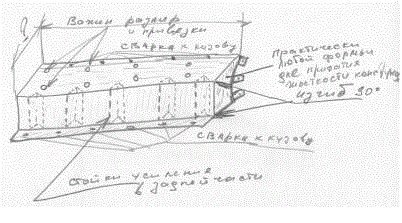 ?
Важен размер
и приведки
сварка к кузову
Практически
любой формы
для придания
жесткости
изгиб 90°
сварка к кузову
стойки усиления
в задней части